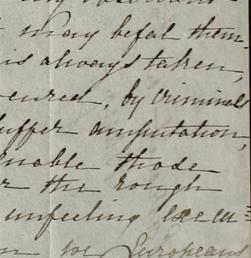 may befal them
is always taken,
by criminal
suffer amputation,
enable those
the rough
unfeeling execu=
we Europeans